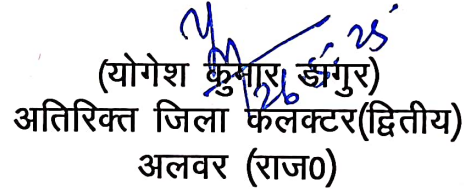 (योगेश कुमार डागुर)
अतिरिक्त जिला कलक्टर(द्वितीय)
अलवर (राज0)